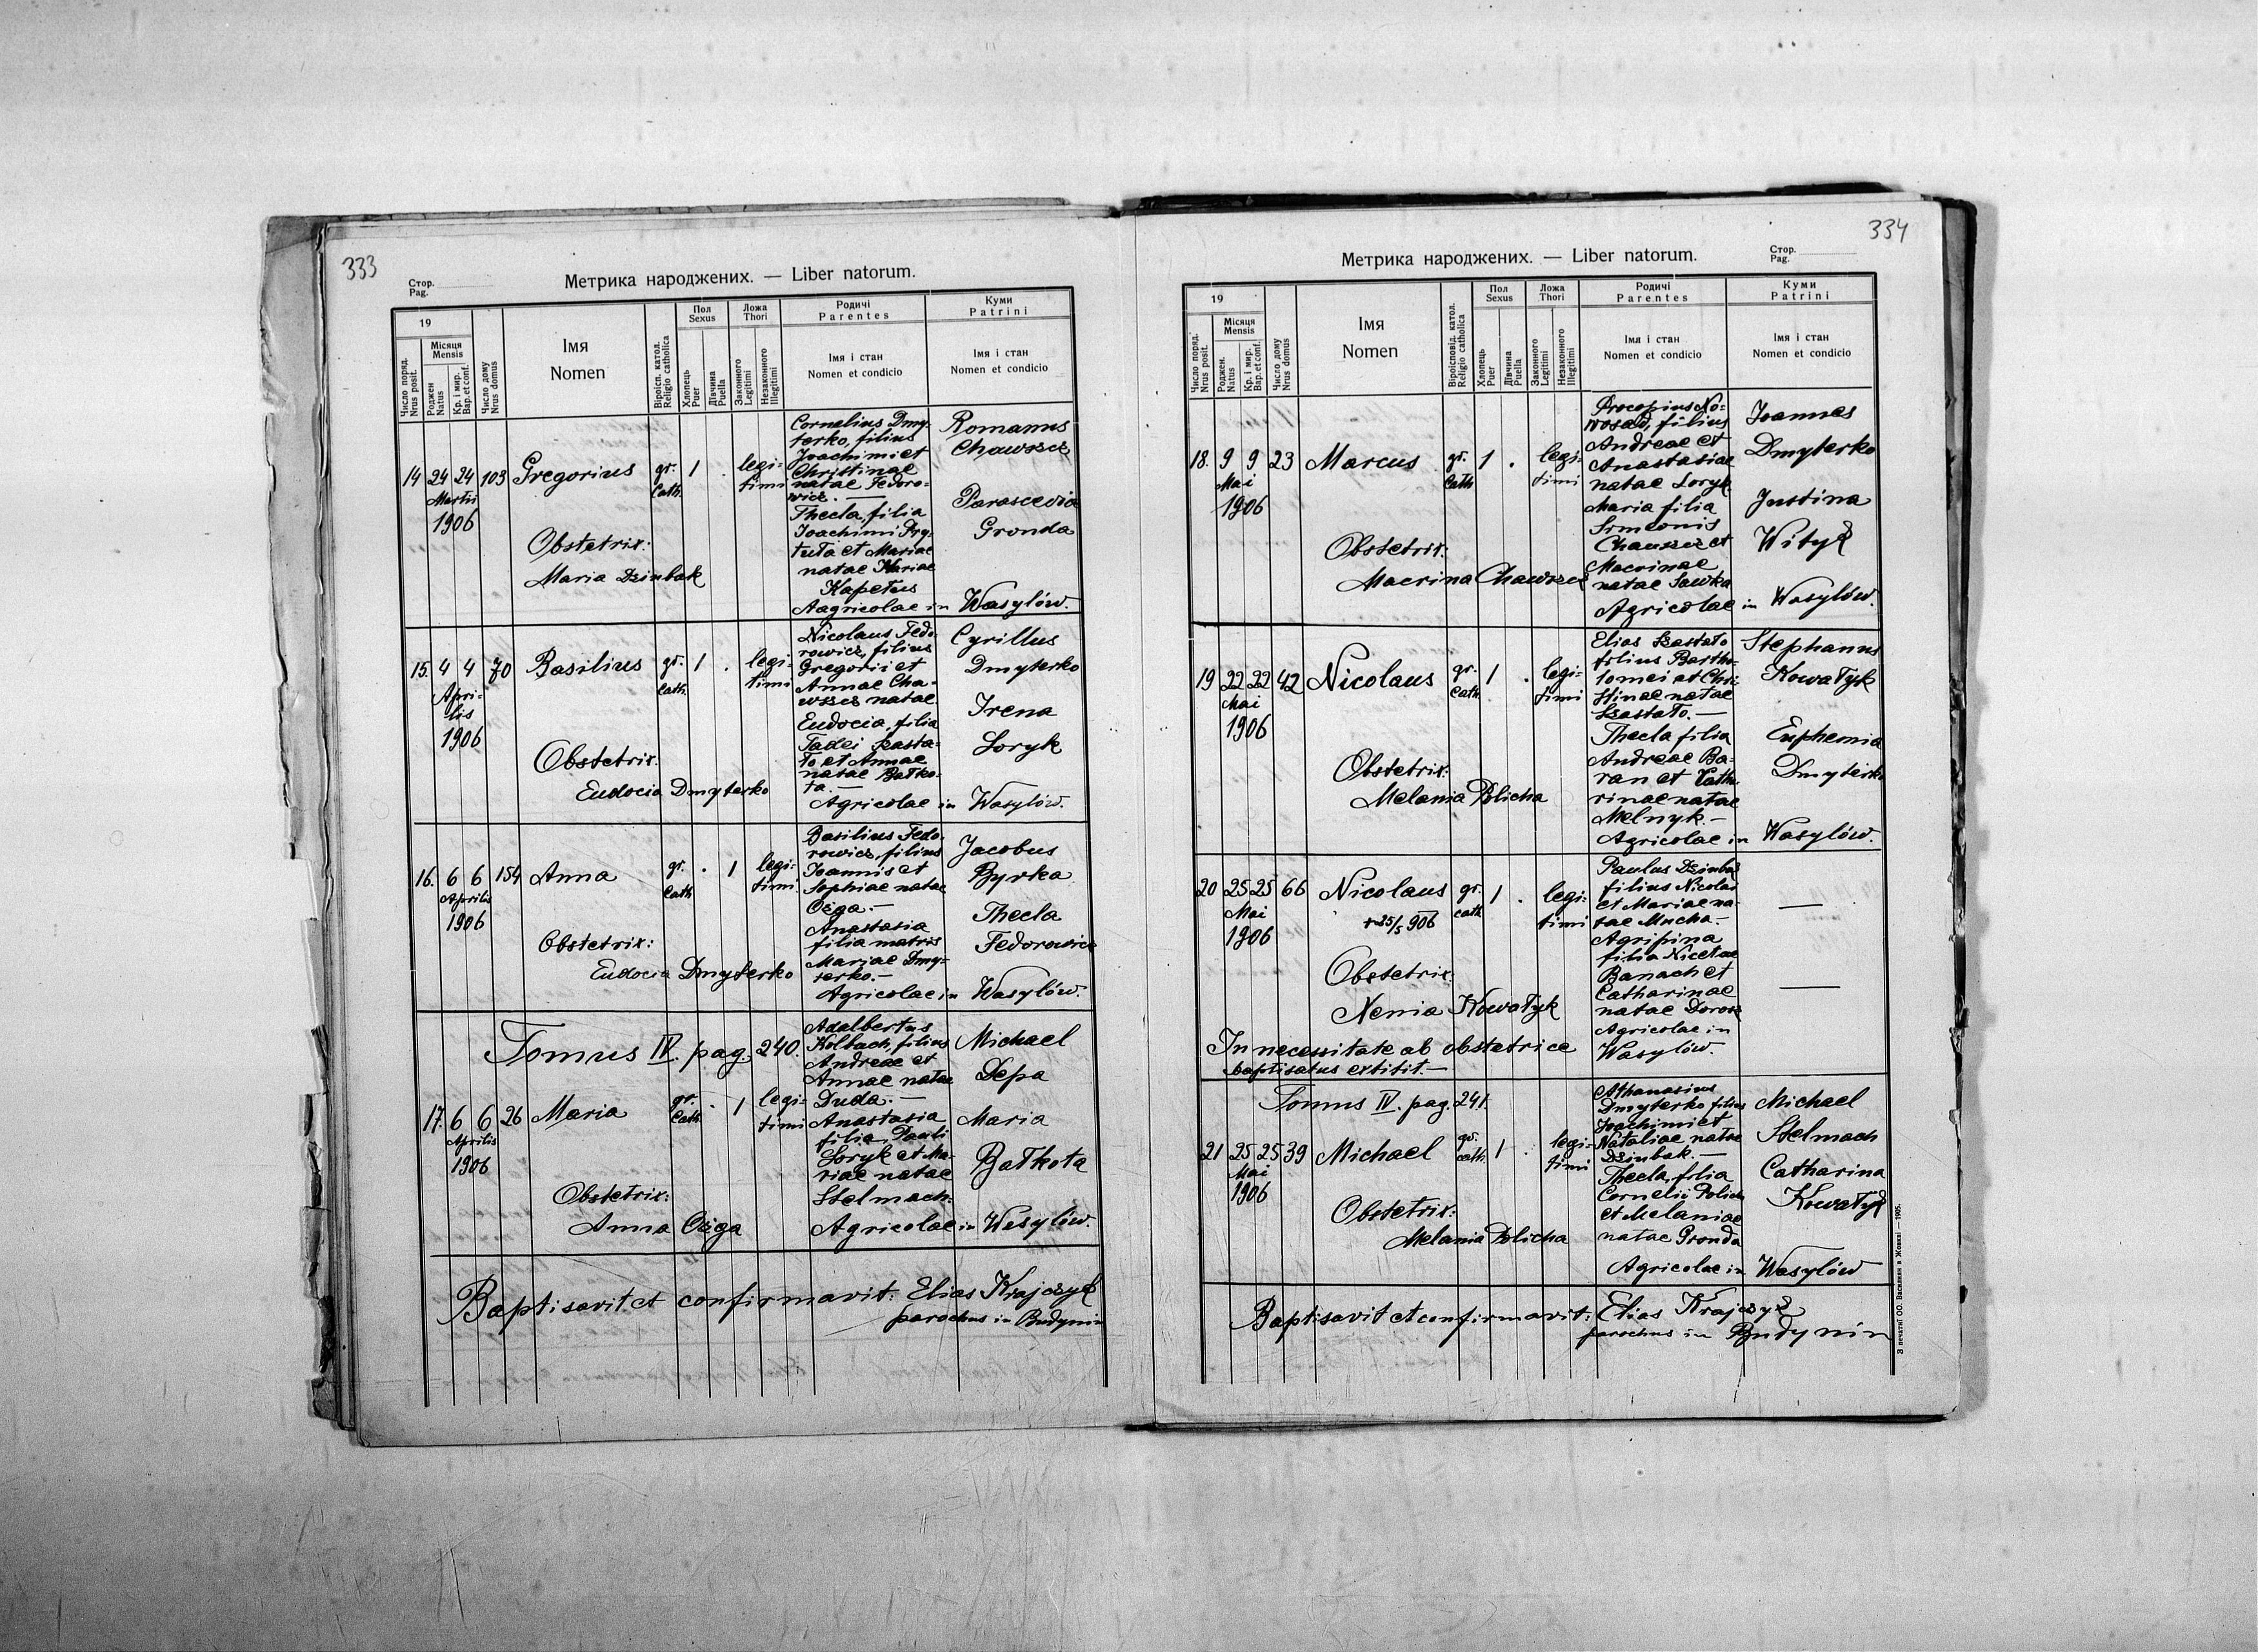 333
Стор.
Pag.
Метрика народжених. — Liber natorum.
19
Число поряд.
Nrus posit.
Місяця
Mensis
Роджен
Natus
Кр. і мир.
Bap. et conf.
Число дому
Nrus domus
Імя
Nomen
Віроісп. катол.
Religio catholica
Пол
Sexus
Хлопець
Puer
Дївчина
Puella
Ложа
Thori
Законного
Legitimi
Незаконного
Illegitimi
Родичі
Parentes
Імя і стан
Nomen et condicio
Куми
Patrini
Імя і стан
Nomen et condicio
14 24 24 103 Gregorius gr. 1 . legi-
Martii Cath. timi
1906
Obstetrix:
Maria Dziubak
Cornelius Dmy-
terko, filius
Joachimi et
Christinae
natae Fedoro-
wicz. —
Thecla, filia
Joachimi Pry-
tuła et Mariae
natae Mariae
Kapetus
Aagricolae in Wasylów.
Romanus
Chawszcz
Parascevia
Gronda
15. 4 4 70 Basilius gr. 1 . legi-
Apri- Cath. timi
lis
1906
Obstetrix:
Eudocia Dmyterko
Nicolaus Fedo-
rowicz, filius
Gregorii et
Annae Cha-
wszcz natae.
Eudocia, filia
Tadei Szasta-
ło et Annae
natae Bałko-
ta. —
Agricolae in Wasylów.
Cyrillus
Dmyterko
Irena
Soryk
16. 6 6 154 Anna gr. . 1 legi-
Aprilis Cath. timi
1906
Obstetrix:
Eudocia Dmyterko
Basilius Fedo-
rowicz, filius
Joannis et
Sophiae natae
Ożga. —
Anastasia
filia matris
Mariae Dmy-
terko. —
Agricolae in Wasylów.
Jacobus
Byrka
Thecla
Fedorowicz
Tomus IV. pag. 240.
17. 6 6 26 Maria gr. . 1 legi-
Aprilis Cath. timi
1906
Obstetrix:
Anna Ożga
Adalbertus
Kolbach, filius
Andreae et
Annae natae
Duda. —
Anastasia
filia Pauli
Soryk et Ma-
riae natae
Stelmach.
Agricolae in Wasylów.
Michael
Depa
Maria
Bałkota
Baptisavit et confirmavit: Elias Krajczyk
parochus in Budynin
334
Метрика народжених. — Liber natorum.
Стор.
Pag.
19
Число поряд.
Nrus posit.
Місяця
Mensis
Роджен.
Natus
Кр. і мир.
Bap. et conf.
Число дому
Nrus domus
Імя
Nomen
Віроісповід. катол.
Religio catholica
Пол
Sexus
Хлопець
Puer
Дївчина
Puella
Ложа
Thori
Законного
Legitimi
Незаконного
Illegitimi
Родичі
Parentes
Імя і стан
Nomen et condicio
Куми
Patrini
Імя і стан
Nomen et condicio
18. 9 9 23 Marcus gr. 1 . legi-
Mai Cath timi
1906
Obstetrix:
Macrina Chawszcz
Procopius No-
wosad, filius
Andreae et
Anastasiae
natae Soryk.
Maria filia
Simeonis
Chauszcz et
Macrinae
natae Sawka
Agricolae in Wasylów.
Joannes
Dmyterko
Justina
Wityk
19 22 22 42 Nicolaus gr. 1 . legi-
Mai Cath. timi
1906
Obstetrix:
Melania Policha
Elias Szastało
filius Bartho-
lomei et Chri-
stinae natae
Szastało. —
Thecla filia
Andreae Ba-
ran et Catha-
rinae natae
Melnyk. —
Agricolae in Wasylów.
Stephanus
Kowałyk
Euphemia
Dmyterko
20 25 25 66 Nicolaus gr. 1 . legi-
Mai +25/5 906 cath timi
1906
Obstetrix:
Nenia Kowałyk
In necessitate ab obstetrice
baptisatus extitit. —
Paulus Dziubak
filius Nicolai
et Mariae na-
tae Mucha. —
Agripina
filia Nicetae
Banach et
Catharinae
natae Dorosz
Agricolae in
Wasylów.
Tomus IV. pag. 241.
21 25 25 39 Michael gr. 1 . legi-
Mai cath. timi
1906
Obstetrix:
Melania Policha
Athanasius
Dmyterko filius
Joachimi et
Nataliae natae
Dziubak. —
Thecla, filia
Cornelii Policha
et Melaniae
natae Gronda
Agricolae in Wasylów
Michael
Stelmach
Catharina
Kowałyk
Baptisavit et confirmavit: Elias Krajczyk
parochus in Budynin
З печатні ОО. Василиян в Жовкві — 1905.